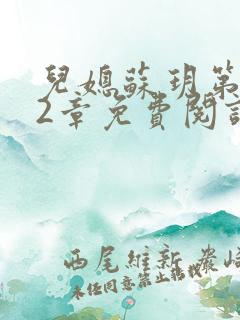 兒媳蘇玥第
2章免費閱讀
西尾維新 巖崎
未任同意禁止轉載